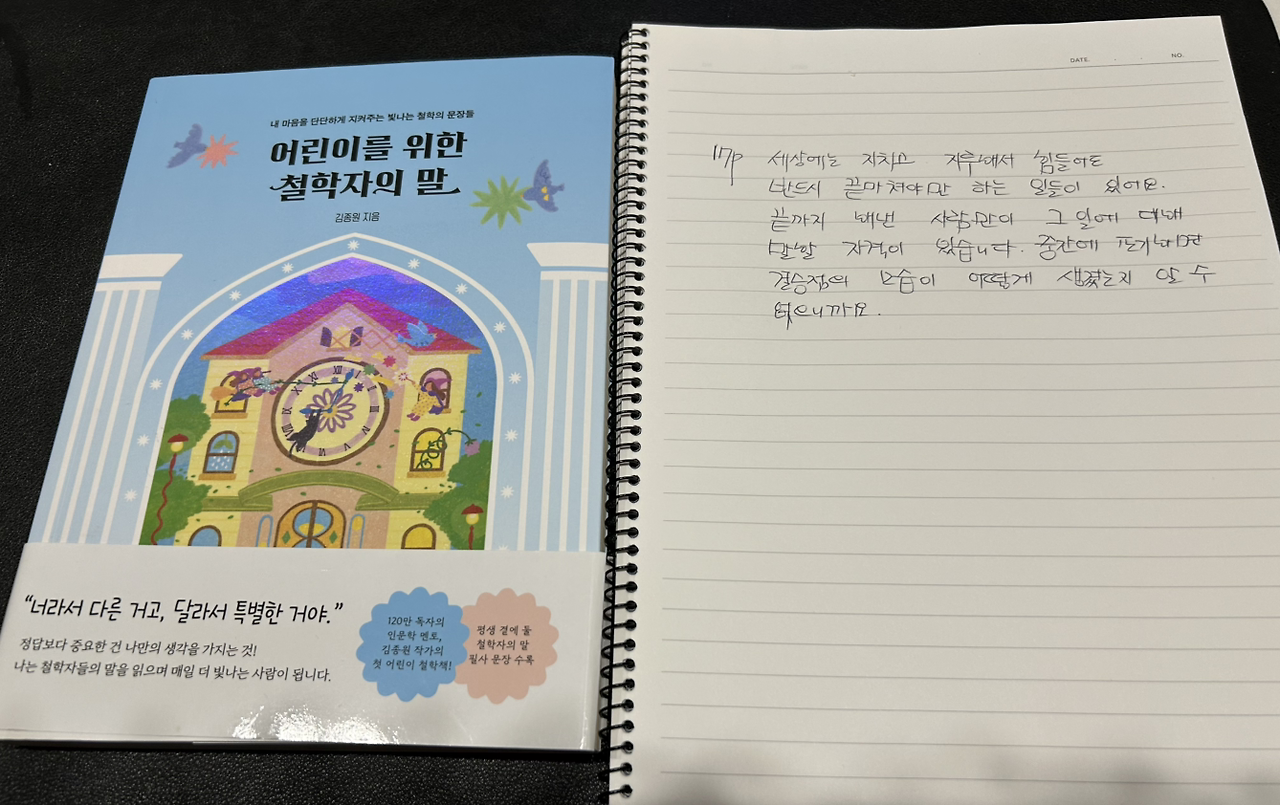 내 마음을 단단하게 지켜주는 빛나는 철학의 문장들
어린이를 위한
철학자의 말
김종원 지음
“너라서 다른 거고, 달라서 특별한 거야.”
정답보다 중요한 건 나만의 생각을 가지는 것!
나는 철학자들의 말을 읽으며 매일 더 빛나는 사람이 됩니다.
120만 독자의
인문학 멘토,
김종원 작가의
첫 어린이 철학책!
평생 곁에 둘
철학자의 말
필사 문장 수록
DATE. . . NO.
117p 세상에는 지치고 지루해서 힘들어도
반드시 끝마쳐야만 하는 일들이 있어요.
끝까지 해낸 사람만이 그 일에 대해
말할 자격이 있습니다. 중간에 포기하면
결승점의 모습이 어떻게 생겼는지 알 수
없으니까요.